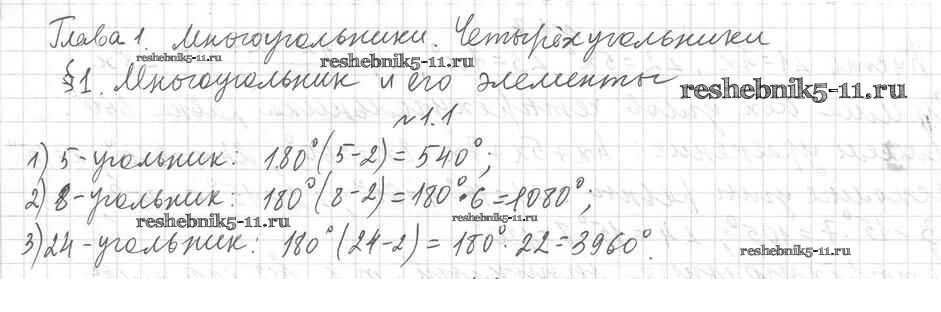 Глава 1. Многоугольники. Четырёхугольники
reshebnik5-11.ru
reshebnik5-11.ru
§1. Многоугольник и его элементы
reshebnik5-11.ru
№1.1
1) 5-угольник: 180°(5-2)=540°;
2) 8-угольник: 180°(8-2)=180°·6=1080°;
reshebnik5-11.ru
reshebnik5-11.ru
3) 24-угольник: 180°(24-2)=180°·22=3960°.
reshebnik5-11.ru